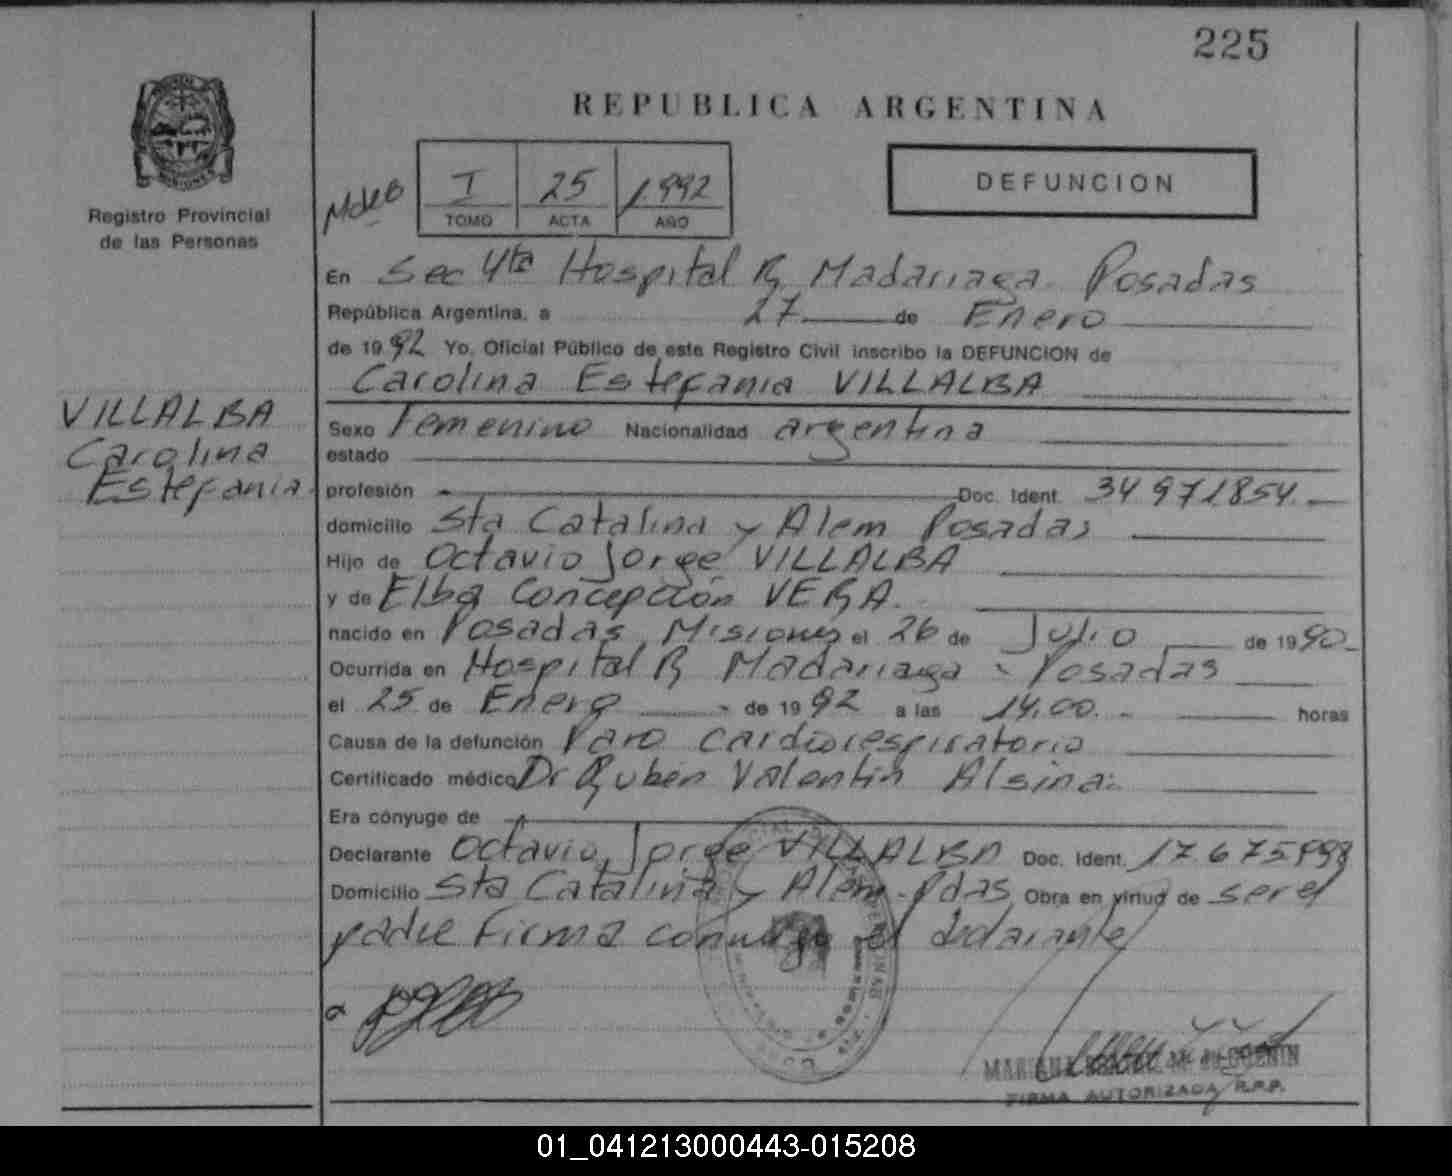 225
REPUBLICA ARGENTINA
Registro Provincial
de las Personas
I 25 1.992
TOMO ACTA AÑO
DEFUNCION
En Sec 4ta Hospital R Madariaga. Posadas
República Argentina, a 27 de Enero
de 1992 Yo, Oficial Público de este Registro Civil inscribo la DEFUNCION de
Carolina Estefania VILLALBA
VILLALBA
Carolina
Estefania
Sexo Femenino Nacionalidad argentina
estado
profesión Doc. Ident. 34 971854
domicilio Sta Catalina y Alem Posadas
Hijo de Octavio Jorge VILLALBA
y de Elba Concepción VERA.
nacido en Posadas, Misiones el 26 de Julio de 1990
Ocurrida en Hospital R Madariaga - Posadas
el 25 de Enero de 1992 a las 14.00. horas
Causa de la defunción Paro cardiorespiratorio
Certificado médico Dr Ruben Valentin Alsina
Era cónyuge de
Declarante Octavio Jorge VILLALBA Doc. Ident.
Domicilio Sta Catalina y Alem - Pdas Obra en virtud de ser el
padre Firma conmigo el declarante
MARIANA
FIRMA AUTORIZADA R.P.P.
01_041213000443-015208